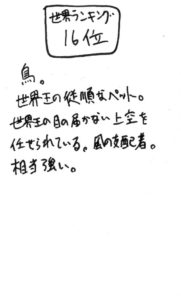 世界ランキング
16位
鳥。
世界王の従順なペット。
世界王の目の届かない上空を
任せられている。風の支配者。
相当強い。